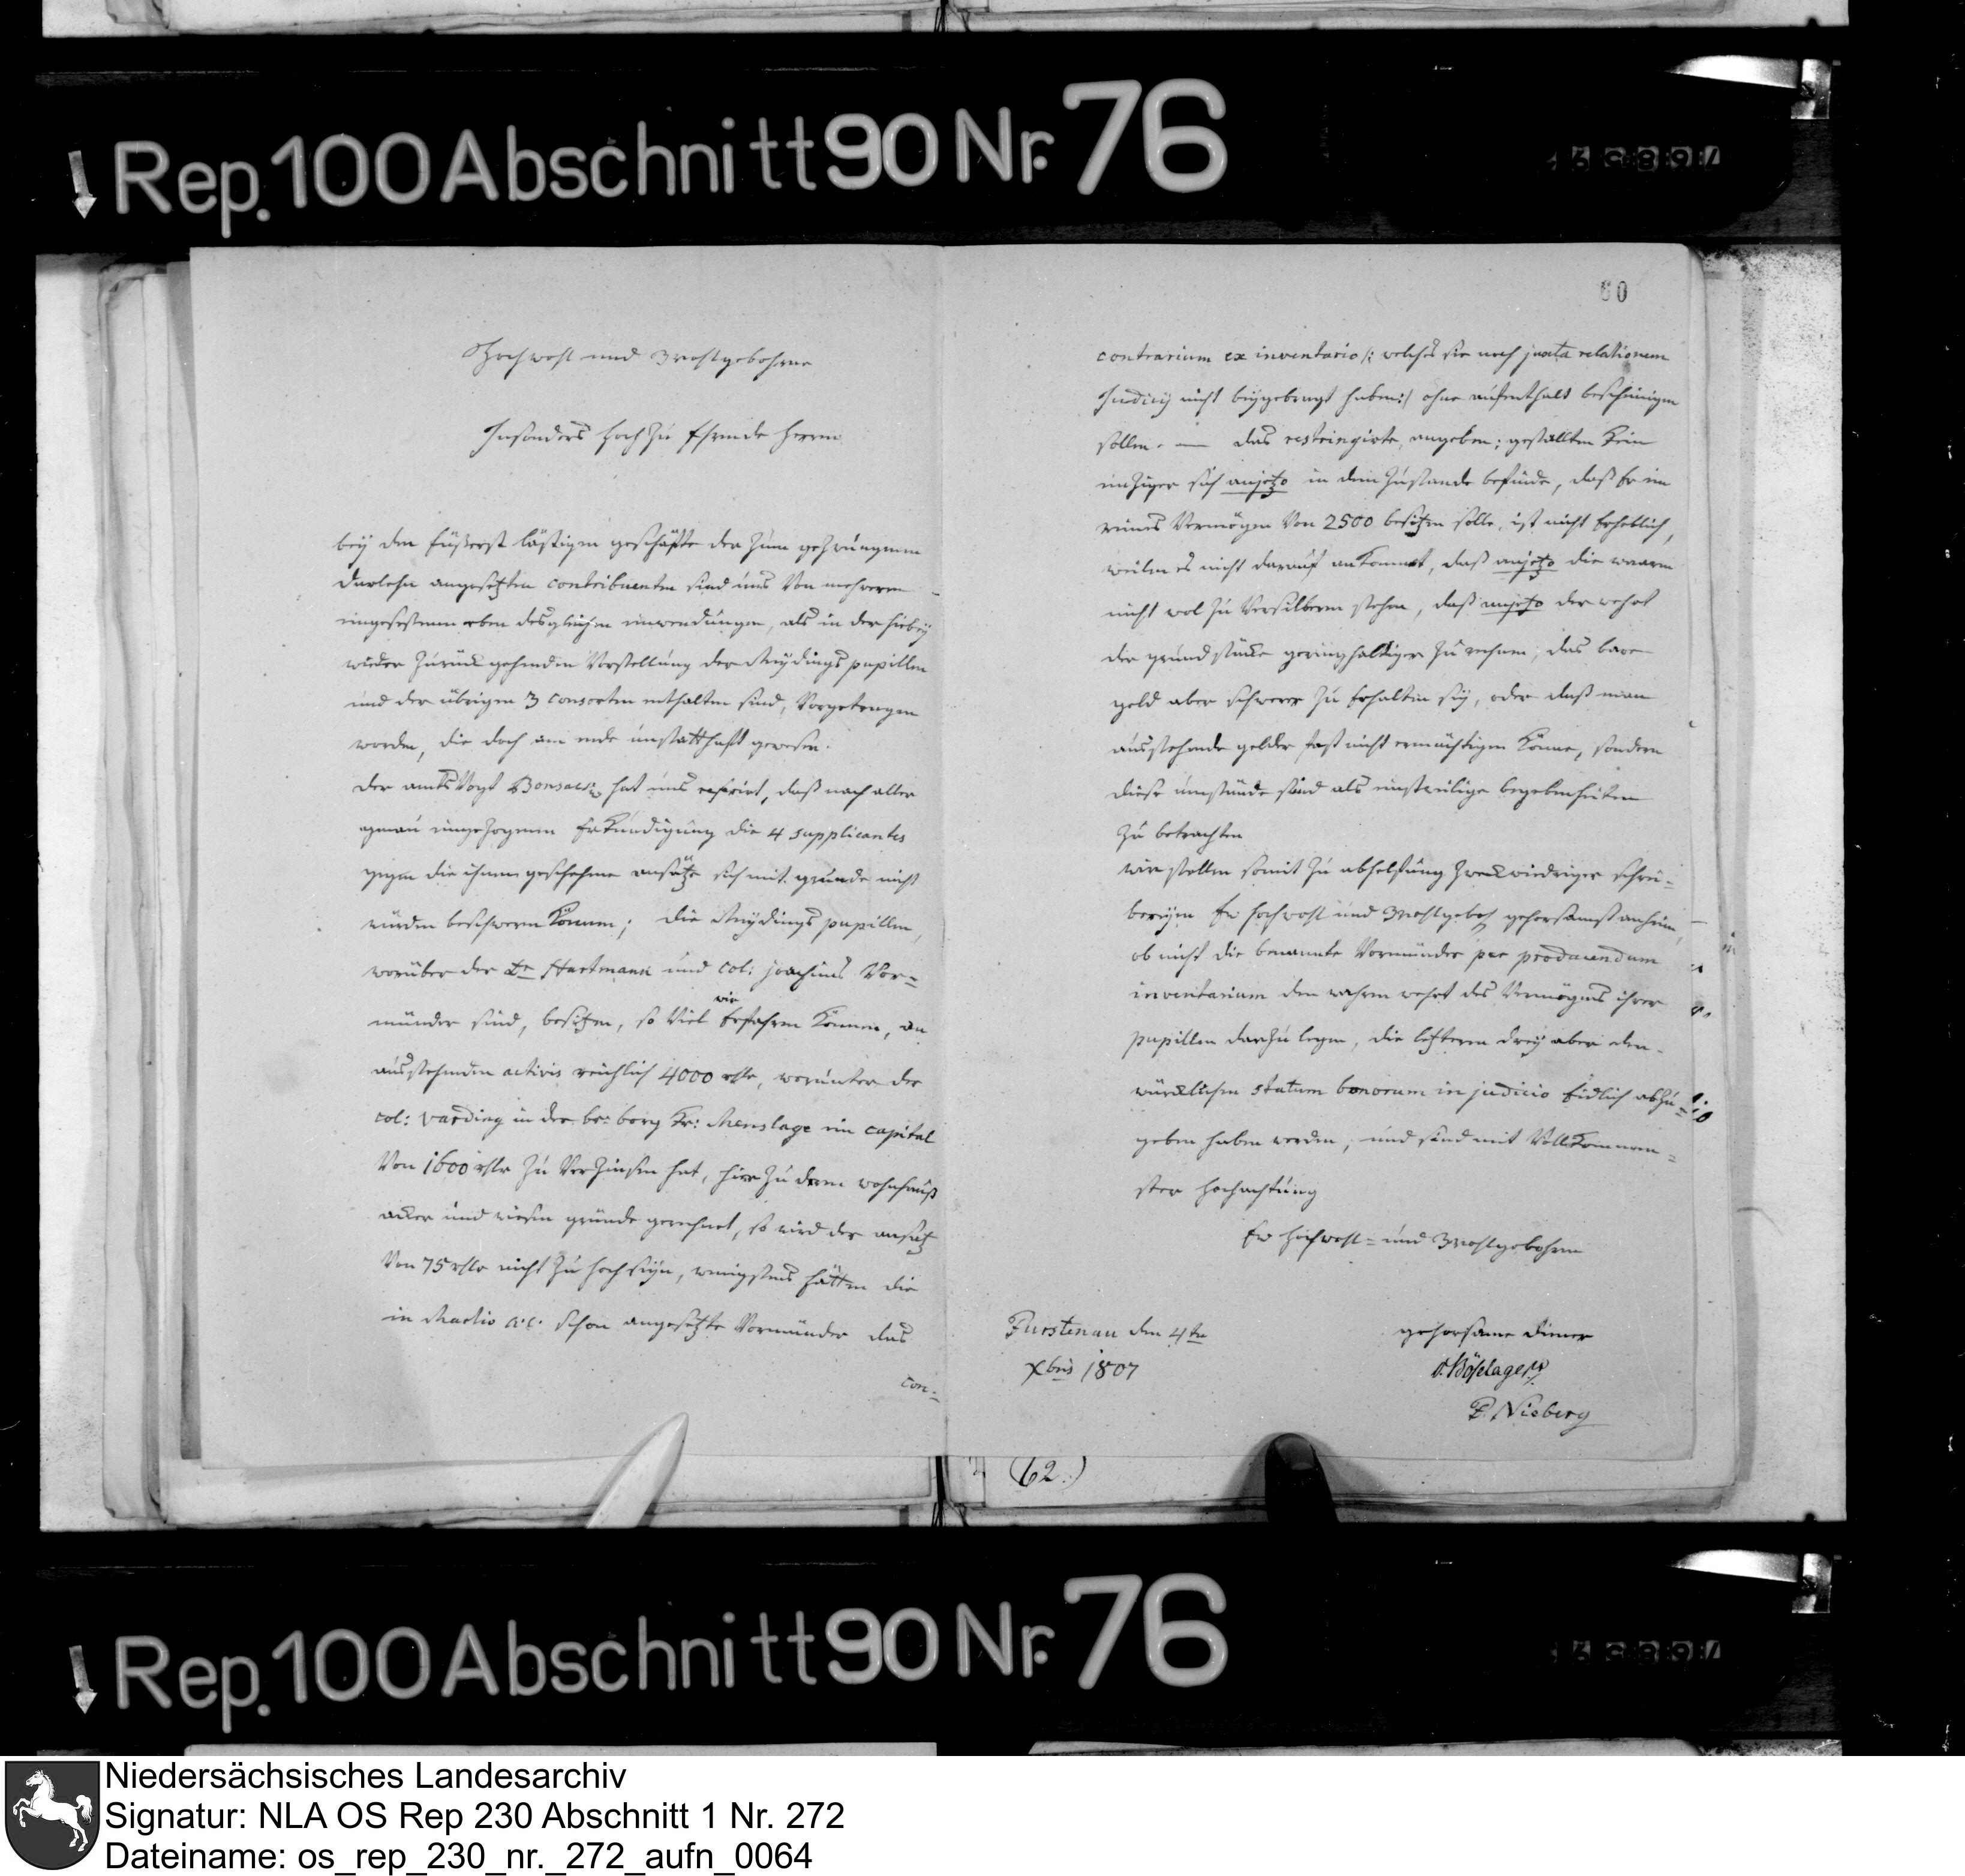 Rep. 100 Abschnitt 90 Nr. 76
60
Hochwohl und Wohlgebohrne
Insonders hoch zu Ehrende Herrn
bey den äußerst lästigen geschäfte der zum gezwungenen
Darlehn angesetzten contribuenten sind uns Von mehreren
eingesessenen eben desgleichen einwendungen, als in der hiebey
wieder zurück gehenden Vorstellung der pupillen
und der übrigen 3 Consorten enthalten sind, Vorgetragen
worden, die doch am ende unstatthaft gewesen.
der amts Vogt hat uns referirt, daß nach aller
genau eingezogenen Erkundigung die 4 supplicantes
gegen die ihnen geschehene ansätze sich mit grunde nicht
würden beschweren können; die pupillen,
worüber der Dr Hartmann und Col: Joachims Vor=
münder sind, besitzen, so Viel wir Erfahren können, an
ausstehenden activis reichlich 4000 rthlr, worunter der
Col: Varding in der br: borg Kr: Menslage ein capital
Von 1600 rthlr zu Verzinsen hat, hiezu deren wohnhauß
acker und wiesen gründe gerechnet, so wird der ansatz
Von 75 rthlr nicht zu hoch seyn, wenigstens hätten die
in Martio a. c. schon angesetzte Vormünder das
con=
contrarium ex inventario /: welches sie noch juxta relationem
Judicij nicht beygebragt haben :/ ohne aufenthalt bescheinigen
sollen. — das restringirte angeben; gestallten Kein
einziger sich anjetzo in dem Zustande befinde, daß Er ein
reines Vermögen Von 2500 besitzen solle, ist nicht Erheblich,
weilen es nicht darauf ankommt, daß anjetzo die waaren
nicht wol zu Versilbern stehen, daß anjetzo der wehrt
der grundstücke geringhaltiger zu nehmen, das bare
geld aber schwerer zu Erhalten sey, oder daß man
ausstehende gelder fast nicht ermächtigen könne, sondern
diese umstände sind als einstweilige begebenheiten
zu betrachten
wir stellen somit zu abhelfung zweckwiedriger schrei=
bereyen Ew hochwohl und Wohlgeboh gehorsamst anheim,
ob nicht die benannte Vormünder per producendum
inventarium den wahren wehrt des Vermögens ihrer
pupillen darzulegen, die letzteren drey aber den
würcklichen statum bonorum in judicio Eidlich abzu=
geben haben werden, und sind mit Vollkommen=
ster hochachtung
Ew hochwohl= und Wohlgebohrn
Furstenau den 4te
xbris 1807
gehorsame diener
v. Böselager
P. Nieberg
(62.)
Rep. 100 Abschnitt 90 Nr. 76
Niedersächsisches Landesarchiv
Signatur: NLA OS Rep 230 Abschnitt 1 Nr. 272
Dateiname: os_rep_230_nr._272_aufn_0064